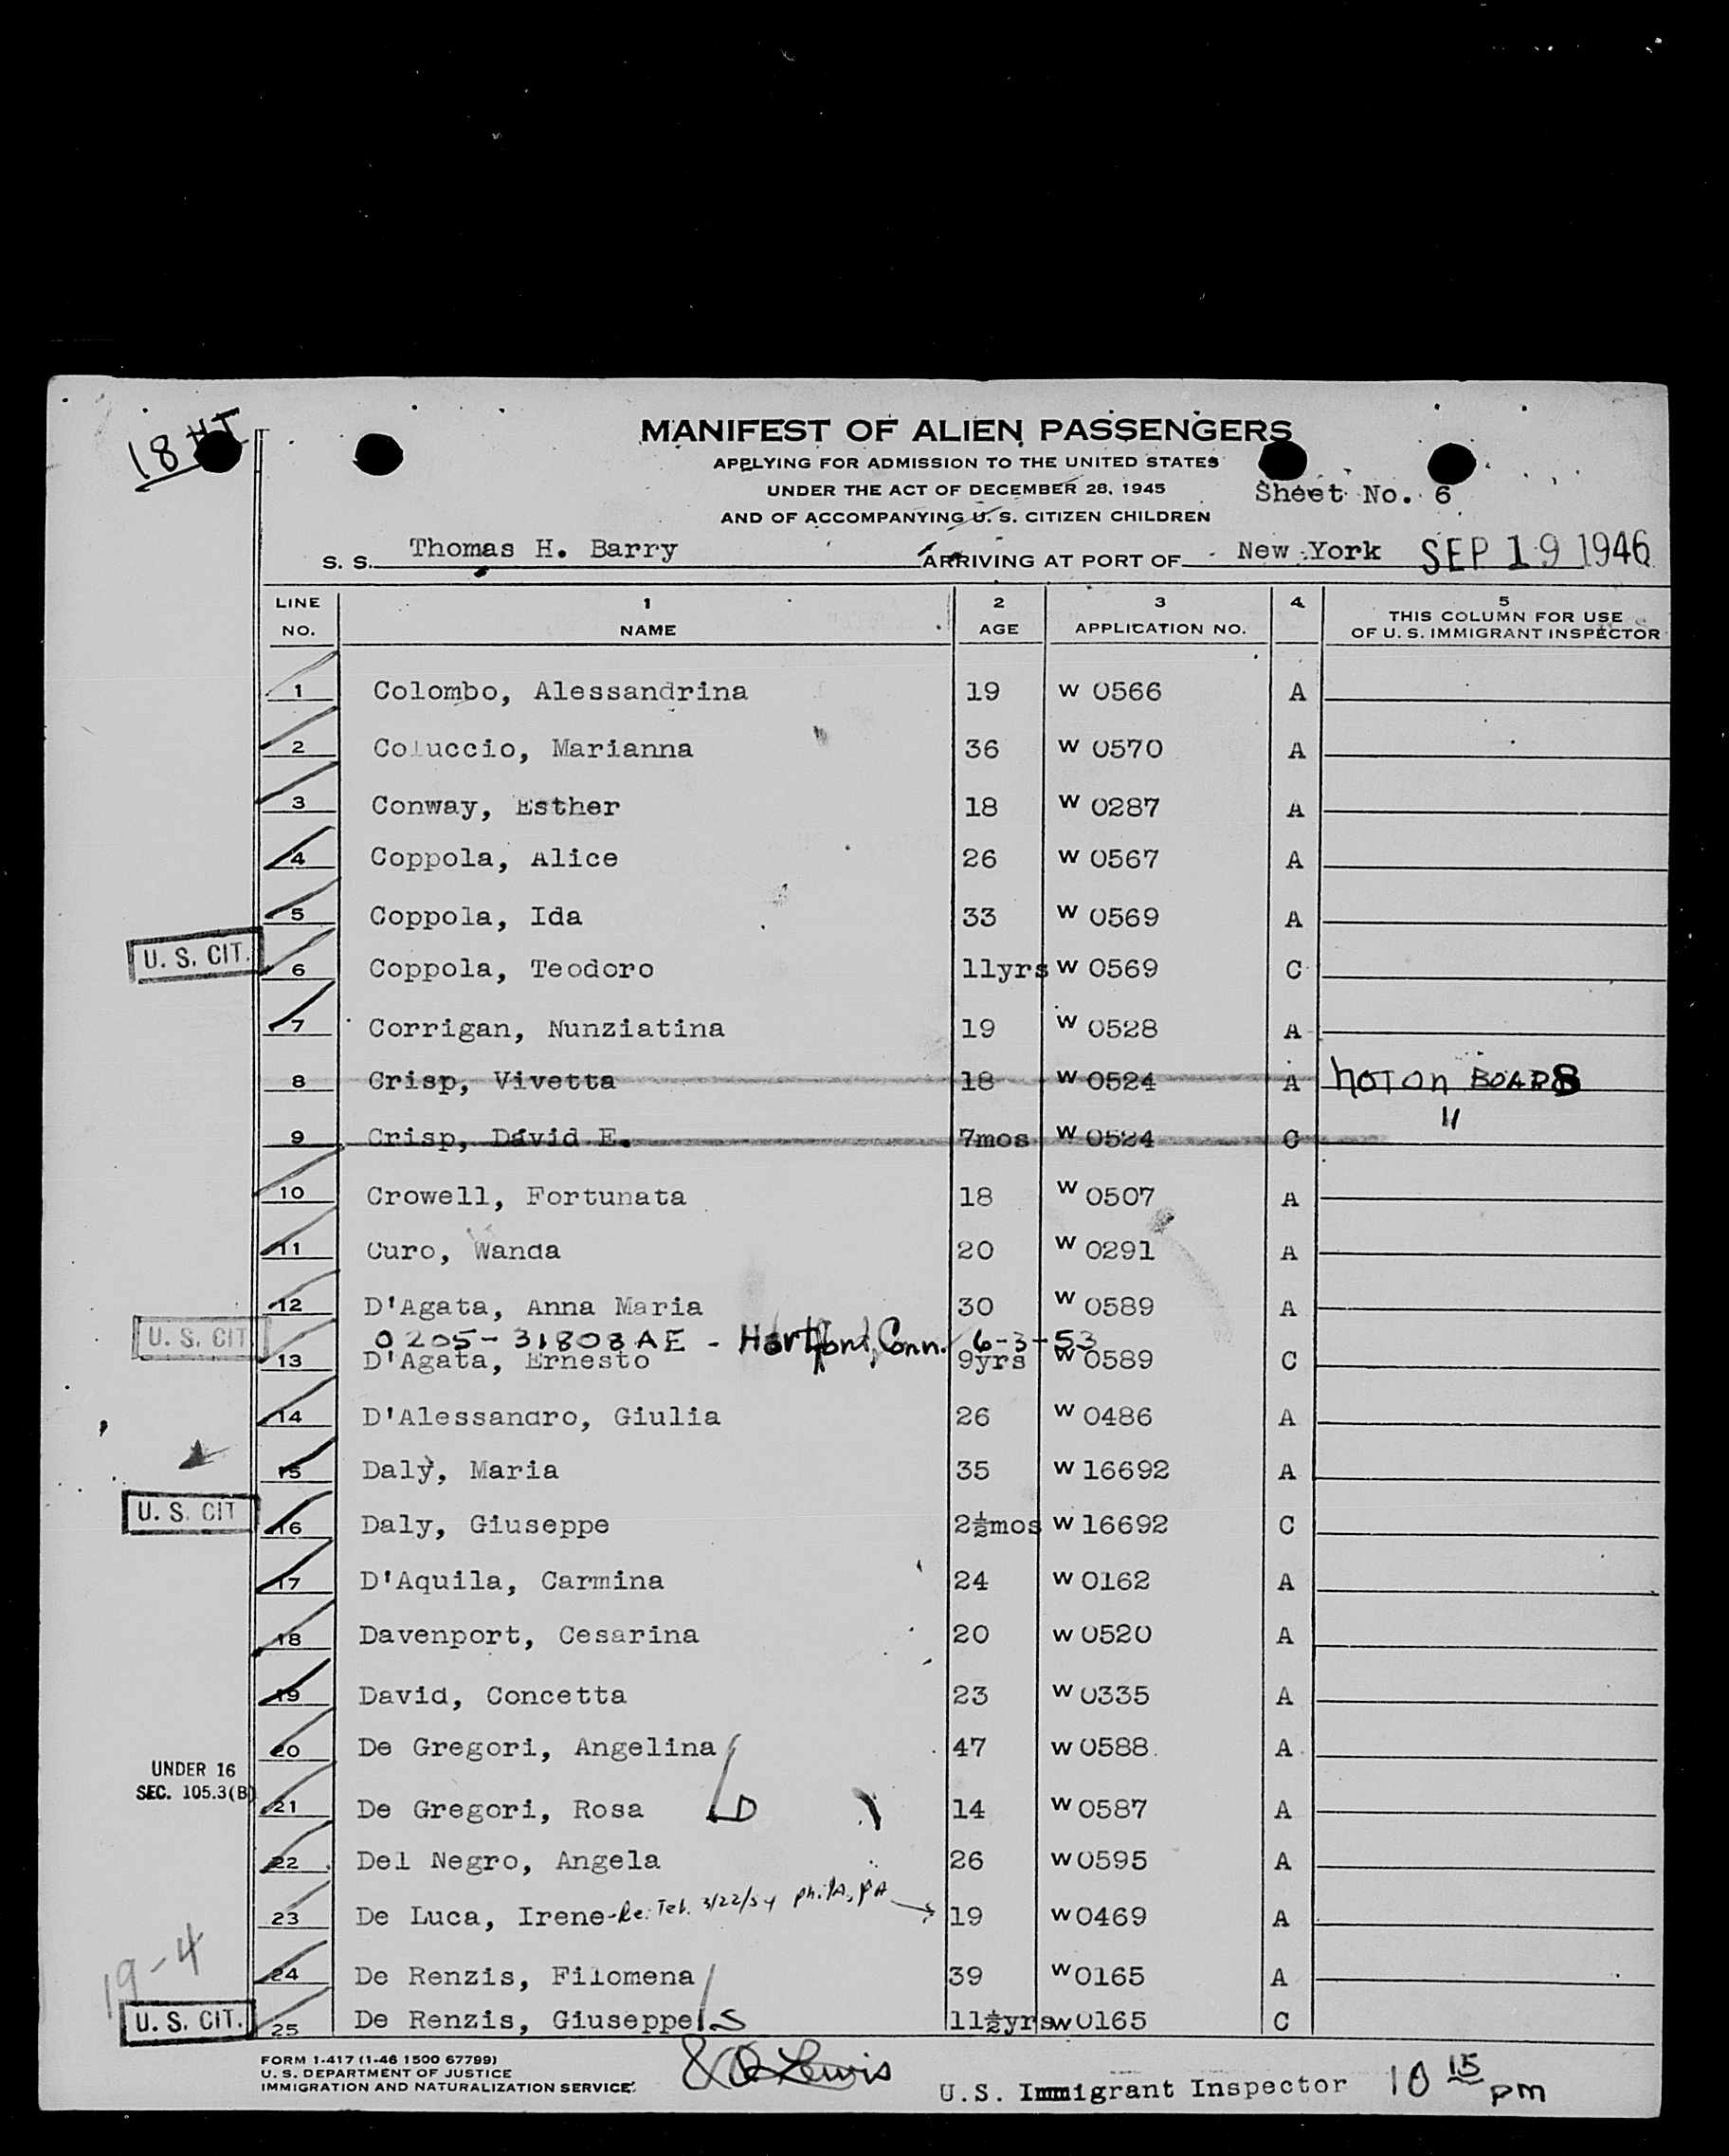 18 HT
MANIFEST OF ALIEN PASSENGERS
APPLYING FOR ADMISSION TO THE UNITED STATES
UNDER THE ACT OF DECEMBER 28, 1945
Sheet No. 6
AND OF ACCOMPANYING U. S. CITIZEN CHILDREN
S. S. Thomas H. Barry ARRIVING AT PORT OF New York SEP 19 1946
LINE NO. 1 NAME 2 AGE 3 APPLICATION NO. 4 5 THIS COLUMN FOR USE OF U. S. IMMIGRANT INSPECTOR
1 Colombo, Alessandrina 19 W 0566 A
2 Coluccio, Marianna 36 W 0570 A
3 Conway, Esther 18 W 0287 A
4 Coppola, Alice 26 W 0567 A
5 Coppola, Ida 33 W 0569 A
U. S. CIT. 6 Coppola, Teodoro 11yrs W 0569 C
7 Corrigan, Nunziatina 19 W 0528 A
8 Crisp, Vivetta 18 W 0524 A NOT ON BOARD
9 Crisp, David E. 7mos W 0524 C "
10 Crowell, Fortunata 18 W 0507 A
11 Curo, Wanda 20 W 0291 A
12 D'Agata, Anna Maria 30 W 0589 A
0205-31803 AE - Hartford, Conn. 6-3-53
U. S. CIT. 13 D'Agata, Ernesto 9yrs W 0589 C
14 D'Alessandro, Giulia 26 W 0486 A
15 Daly, Maria 35 W 16692 A
U. S. CIT 16 Daly, Giuseppe 2½mos W 16692 C
17 D'Aquila, Carmina 24 W 0162 A
18 Davenport, Cesarina 20 W 0520 A
19 David, Concetta 23 W 0335 A
20 De Gregori, Angelina 47 W 0588 A
UNDER 16
SEC. 105.3(B) 21 De Gregori, Rosa 14 W 0587 A
22 Del Negro, Angela 26 W 0595 A
23 De Luca, Irene - Re: Tel. 3/22/54 Phila, PA 19 W 0469 A
19-4
24 De Renzis, Filomena 39 W 0165 A
U. S. CIT. 25 De Renzis, Giuseppe 11½yrs W 0165 C
FORM I-417 (1-46 1500 67799)
U. S. DEPARTMENT OF JUSTICE
IMMIGRATION AND NATURALIZATION SERVICE
Lewis
U.S. Immigrant Inspector 10 15 pm